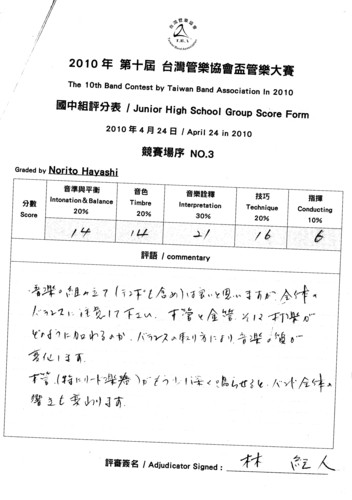 2010 年 第十屆 台灣管樂協會盃管樂大賽
The 10th Band Contest by Taiwan Band Association In 2010
國中組評分表 / Junior High School Group Score Form
2010 年 4 月 24 日 / April 24 in 2010
競賽場序 NO.3
Graded by Norito Hayashi
分數 Score
音準與平衡 Intonation & Balance 20%
音色 Timbre 20%
音樂詮釋 Interpretation 30%
技巧 Technique 20%
指揮 Conducting 10%
14 14 21 16 6
評語 / commentary
音楽の組み立て(テンポも含め)は良いと思いますが、全体の
バランスに注意して下さい。木管と金管、そして打楽が
どのように加わるのか、バランスの取り方により、音楽の質が
変化します。
木管(特にリード楽器)がもう少し強く鳴らせると、バンド全体の
響きも変わります。
評審簽名 / Adjudicator Signed : 林 紀人